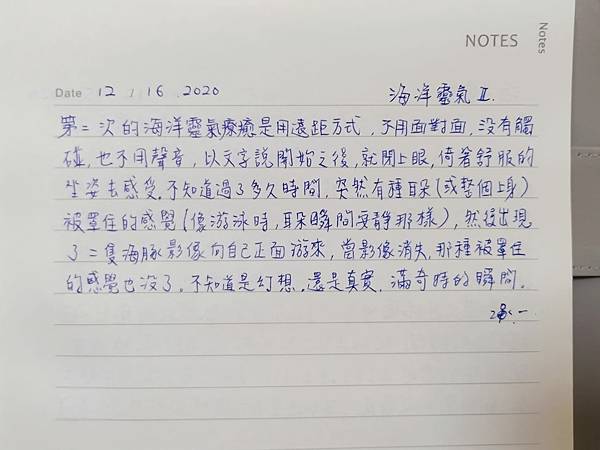 NOTES
Notes
Date 12 / 16 .2020 海洋靈氣 II.
第二次的海洋靈氣療癒是用遠距方式，不用面對面，没有觸
碰，也不用聲音，以文字說開始之後，就閉上眼，倚著舒服的
坐姿去感受。不知道過了多久時間，突然有種耳朵(或整個上身)
被罩住的感覺(像游泳時，耳朵瞬間安靜那樣)，然後出現
了二隻海豚影像向自己正面游來，當影像消失，那種被罩住
的感覺也没了。不知道是幻想，還是真實，滿奇特的瞬間。